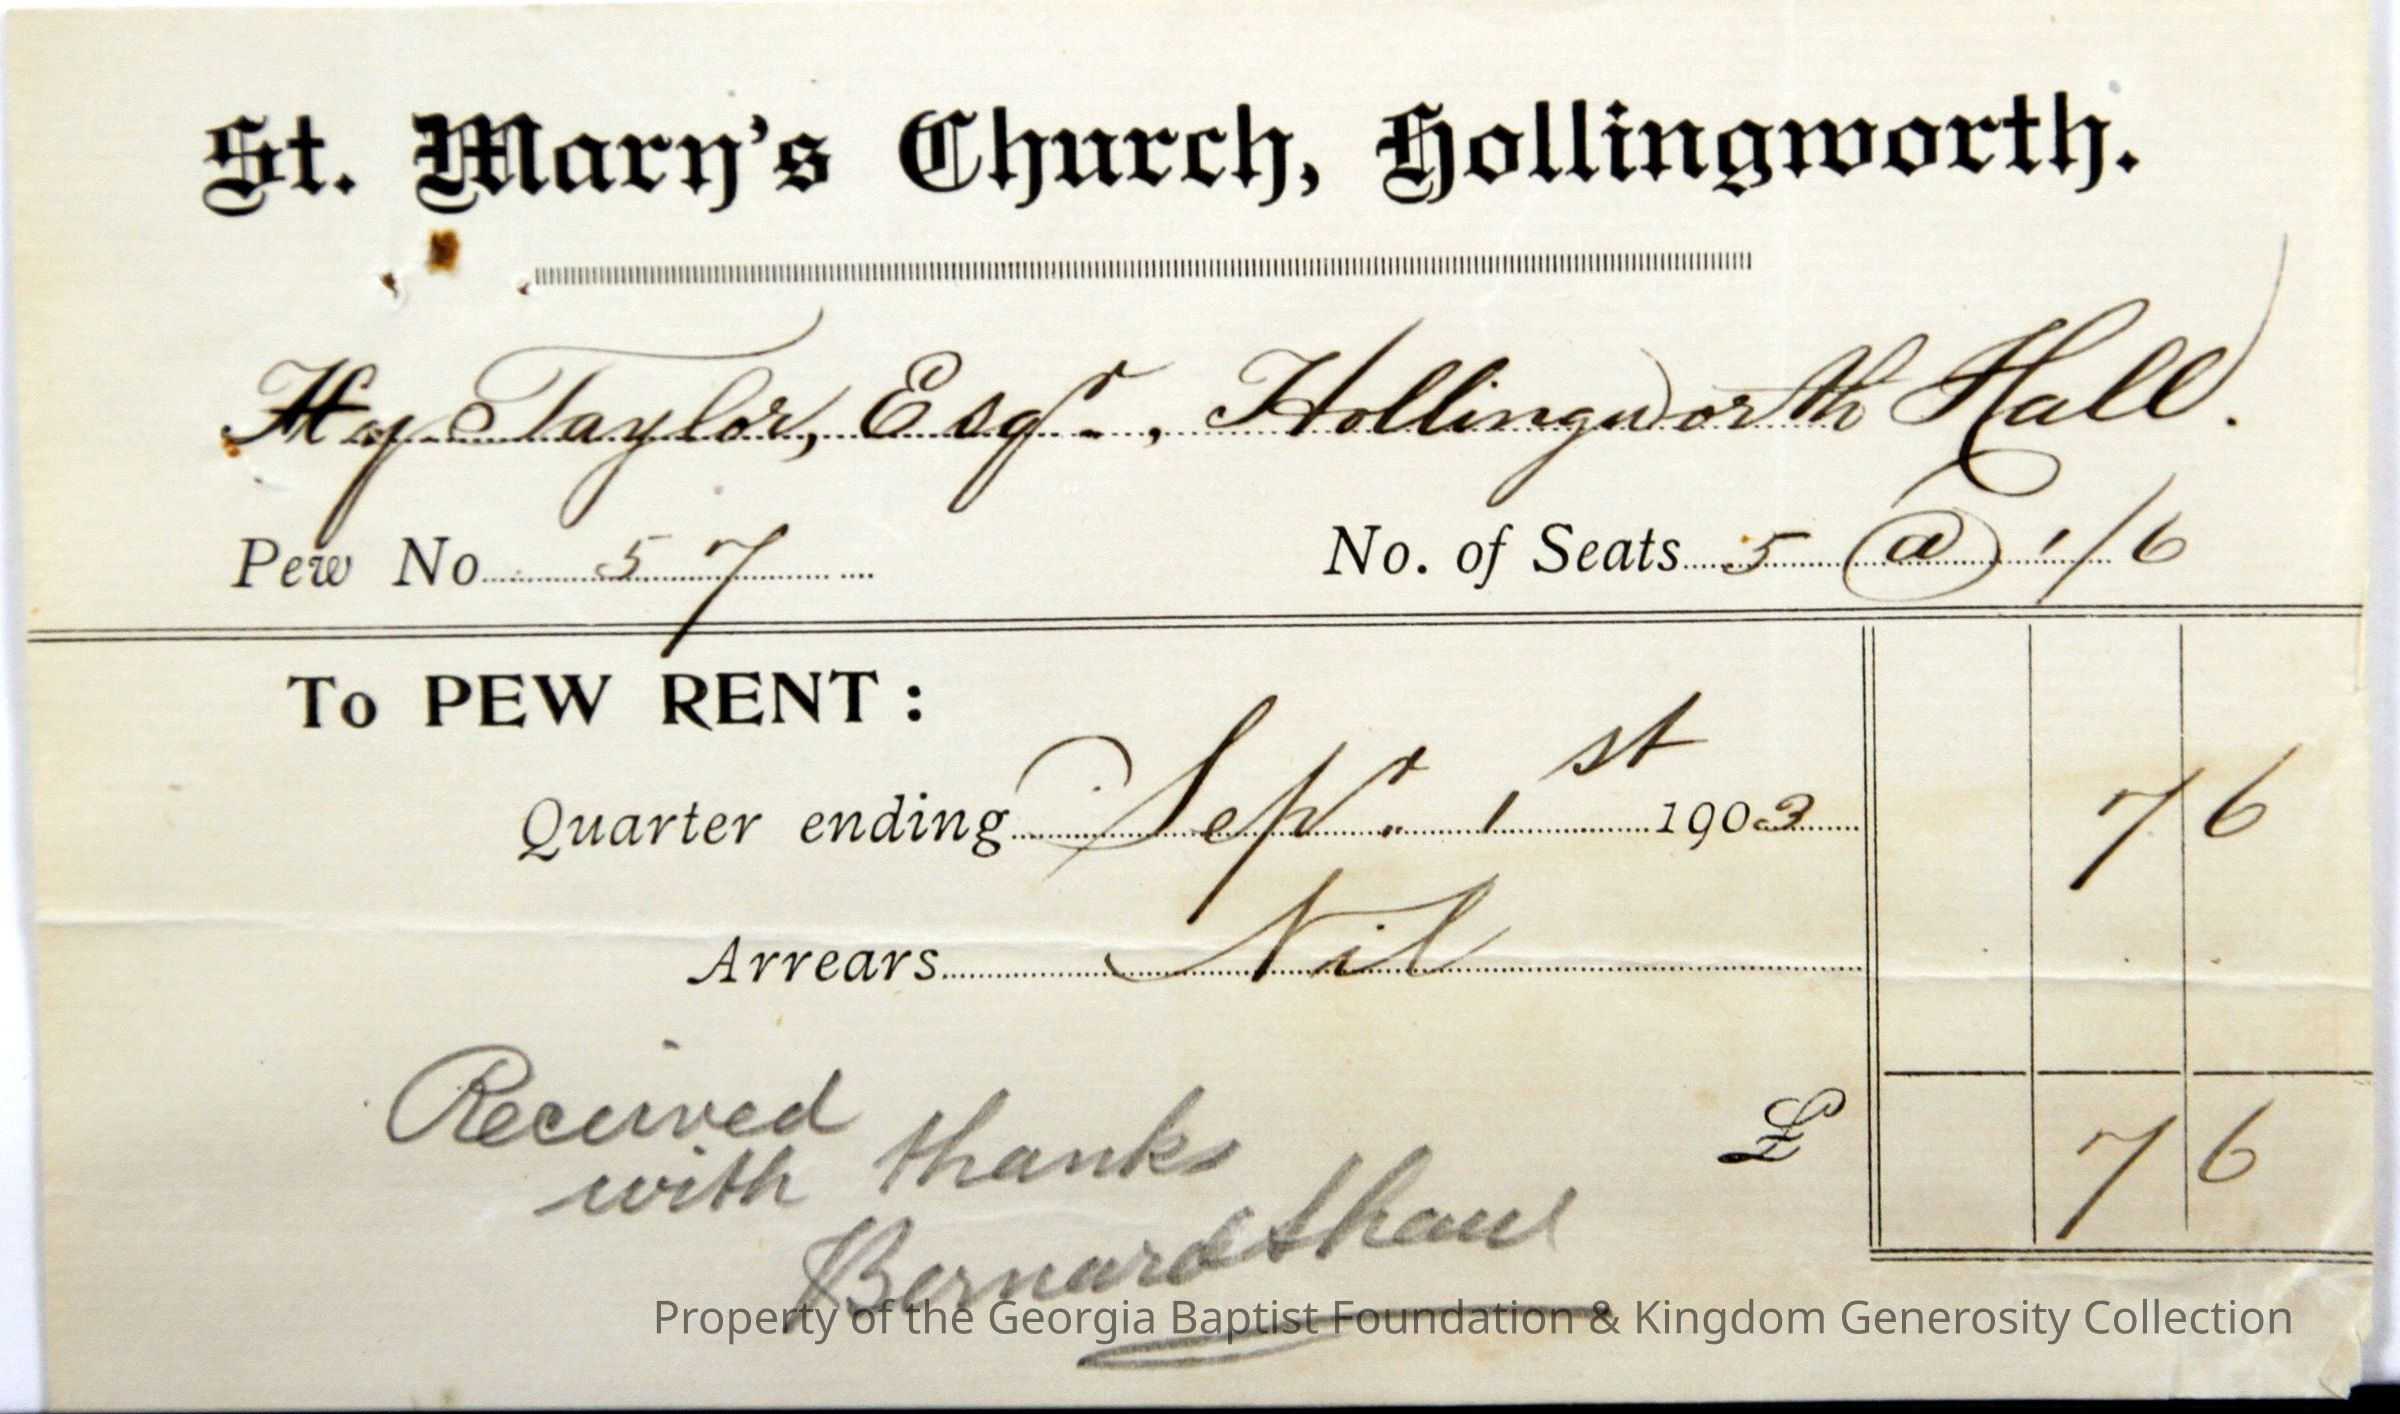 St. Mary's Church, Hollingworth.
Hy. Taylor, Esqr., Hollingworth Hall.
Pew No 57 No. of Seats 5 @ 1/6
To PEW RENT:
Quarter ending Sepr. 1st 1903 7 6
Arrears Nil
£ 7 6
Received
with thanks
Bernard Shaw
Property of the Georgia Baptist Foundation & Kingdom Generosity Collection